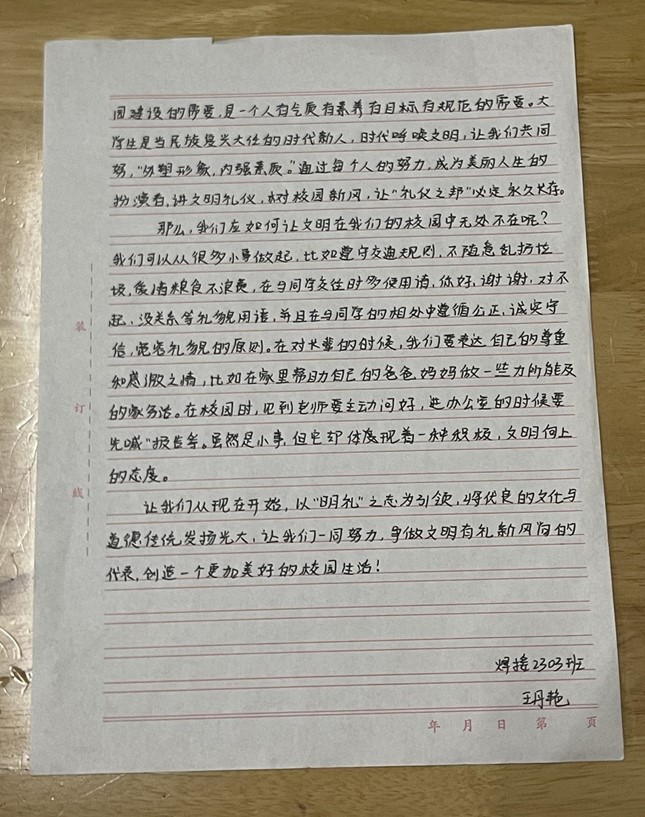 园建设的需要,是一个人有气质有素养有目标有规范的需要。大
学生是当民族复兴大任的时代新人,时代呼唤文明,让我们共同
努,“外塑形象,内强素质。”通过每个人的努力,成为美丽人生的
扮演者,讲文明礼仪,树校园新风,让“礼仪之邦”必定永久长存。
那么,我们应如何让文明在我们的校园中无处不在呢?
我们可以从很多小事做起,比如遵守交通规则,不随意乱扔垃
圾,爱惜粮食不浪费,在与同学交往时多使用请,你好,谢谢,对不
起,没关系等礼貌用语,并且在与同学的相处中遵循公正,诚实守
信,宽容礼貌的原则。在对长辈的时候,我们要表达自己的尊重
和感激之情,比如在家里帮助自己的爸爸妈妈做一些力所能及
的家务活。在校园时,见到老师要主动问好,进办公室的时候要
先喊“报告等。虽然是小事,但它却体度现着一种积极,文明向上
的态度。
让我们从现在开始,以“明礼”之志为引领,将优良的文化与
道德传统发扬光大,让我们一同努力,争做文明有礼新风尚的
代表,创造一个更加美好的校园生活!
焊接2303班
王丹艳
年 月 日 第 页
装
订
线